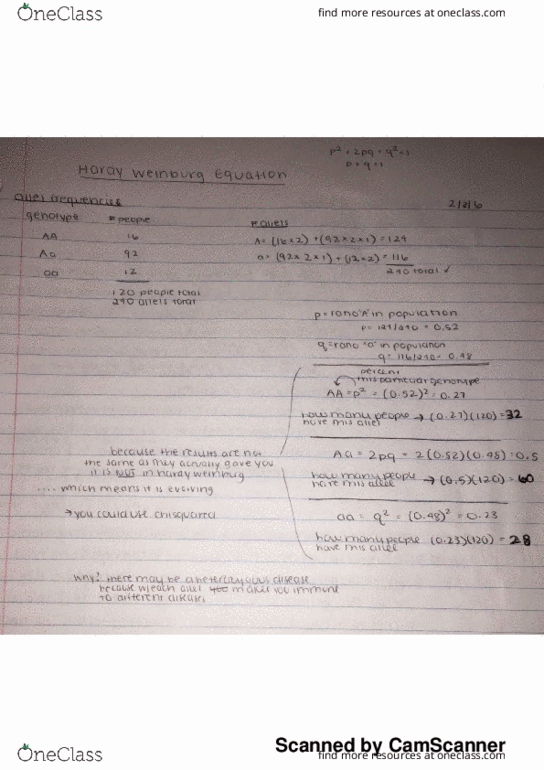 OneClass
find more resources at oneclass.com
p² + 2pq + q² = 1
p + q = 1
Hardy Weinburg Equation
allel frequencies
2/8/6
genotype # people # allels
AA 16 A = (16 x 2) + (92 x 2 x 1) = 124
Aa 92 a = (92 x 2 x 1) + (12 x 2) = 116
aa 12 240 total ✓
120 people total
240 allels total
p = "A" in population
p = 124/240 = 0.52
q = in population
q = 116/240 = 0.48
percent
this particular genotype
AA = p² = (0.52)² = 0.27
how many people → (0.27)(120) = 32
have this allel
because the results are not
the same as they actually gave you
it is NOT in hardy weinburg
.... which means it is evolving
→ you could use chi squared
Aa = 2pq = 2(0.52)(0.48) = 0.5
how many people → (0.5)(120) = 60
have this allel
aa = q² = (0.48)² = 0.23
how many people (0.23)(120) = 28
have this allel
why? there may be a disease
because w/each allel makes you immune
to different diseases
Scanned by CamScanner
OneClass
find more resources at oneclass.com